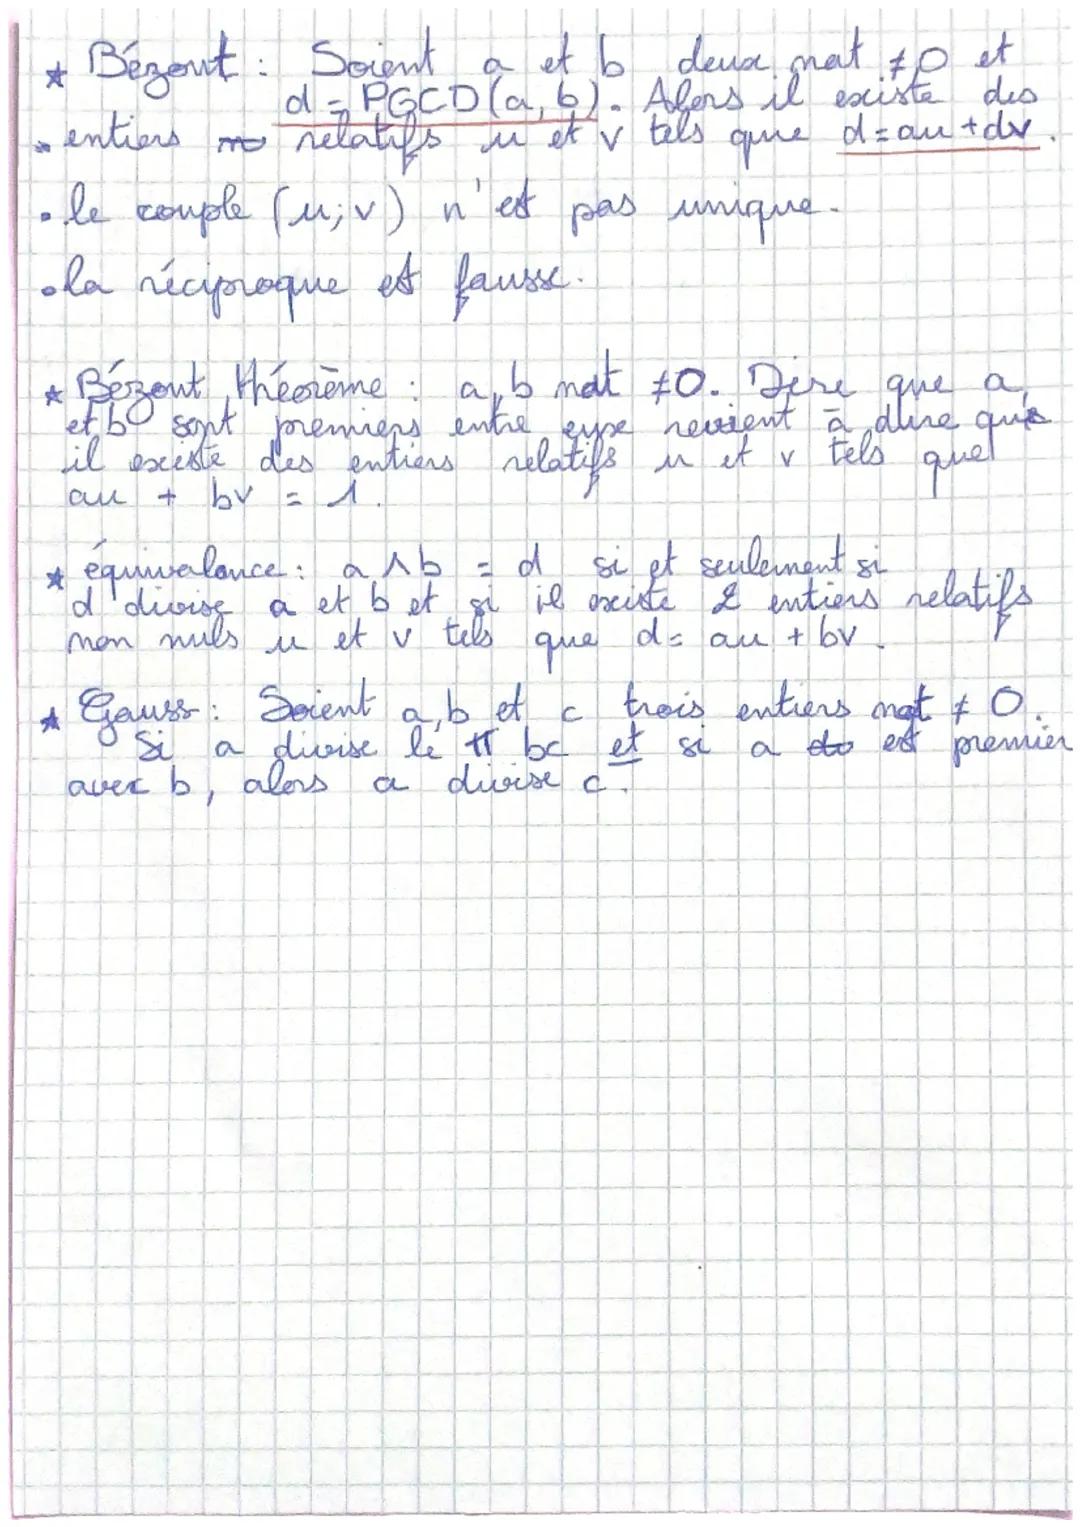 * Bézout : Soient a et b deux nat ≠0 et
d = PGCD(a,b). Alors il existe des
entiers relatifs u et v tels que d=au+dv.
• le couple (u;v) n'est pas unique.
• la réciproque est fausse.
* Bézout théorème : a,b nat ≠0. Dire que a
et b sont premiers entre eux revient à dire que
il existe des entiers relatifs u et v tels que
au + bv = 1.
* équivalence : a∧b = d si et seulement si
d divise a et b et si il existe 2 entiers relatifs
non nuls u et v tels que d= au + bv.
* Gauss : Soient a,b et c trois entiers nat ≠ 0.
Si a divise le π bc et si a est premier
avec b, alors a divise c.